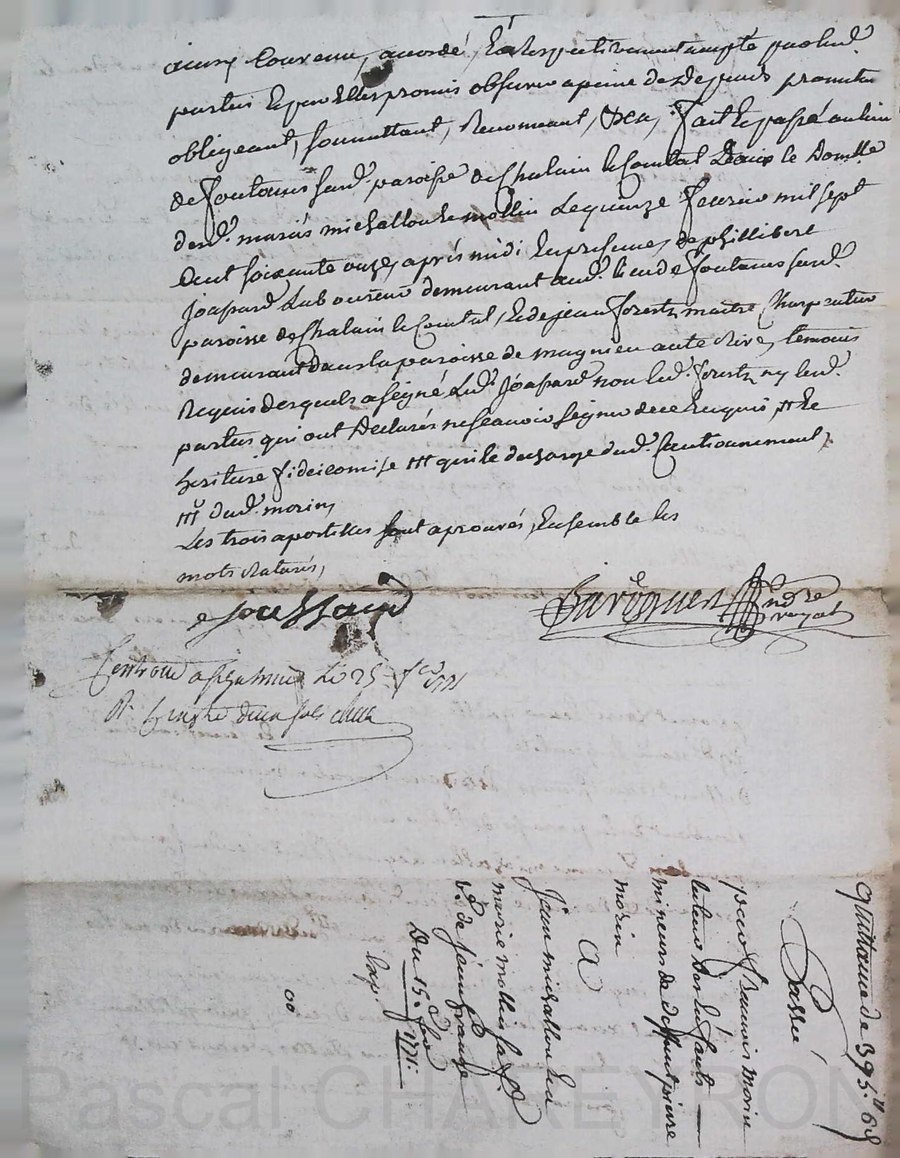 ainsy Convenu, accordé, Et Respectivement accepté par led.
parties Et par Elles promis observer a peine de Depends promettant
obligeant, soumettant, Renonceant, &ca, fait Et passé au lieu
de fontanes susd. paroisse de Chalain le Comtal Dans le Domille
desd. mariés michallon Et mollin Le quinze fevrier mil sept
Cent soixante onze, après midi En presence, de phillibert
Joassard Laboureur demeurant aud. lieu de fontanes susd.
paroisse de Chalain le Comtal, Et de jean forestz maitre Charpentier
demeurant dans la paroisse de magnieu auterive, temoins
Requis desquels a signé Led. Joassard non led. forestz ny lesd.
parties qui ont Declarés ne scavoir signer de ce Enquis, # Et
heriture fideicomise ## qui le decharge dud. Cautionnement,
### dud. morin,
Les trois apostilles sont aprouvés, Ensemble les
mots Raturés,
Joassard
nore
royal
Controllé a le 25 fev 1771
Quittance de 395.ll 6s
Passé
par sr francois morin
tuteur des Enfants
mineurs de deffunt pierre
morin
A
Jean michallon Et a
marie mollin sa f.
ve. de jean
Du 15. fer 1771.
Exp.
00
Pascal CHAREYRON